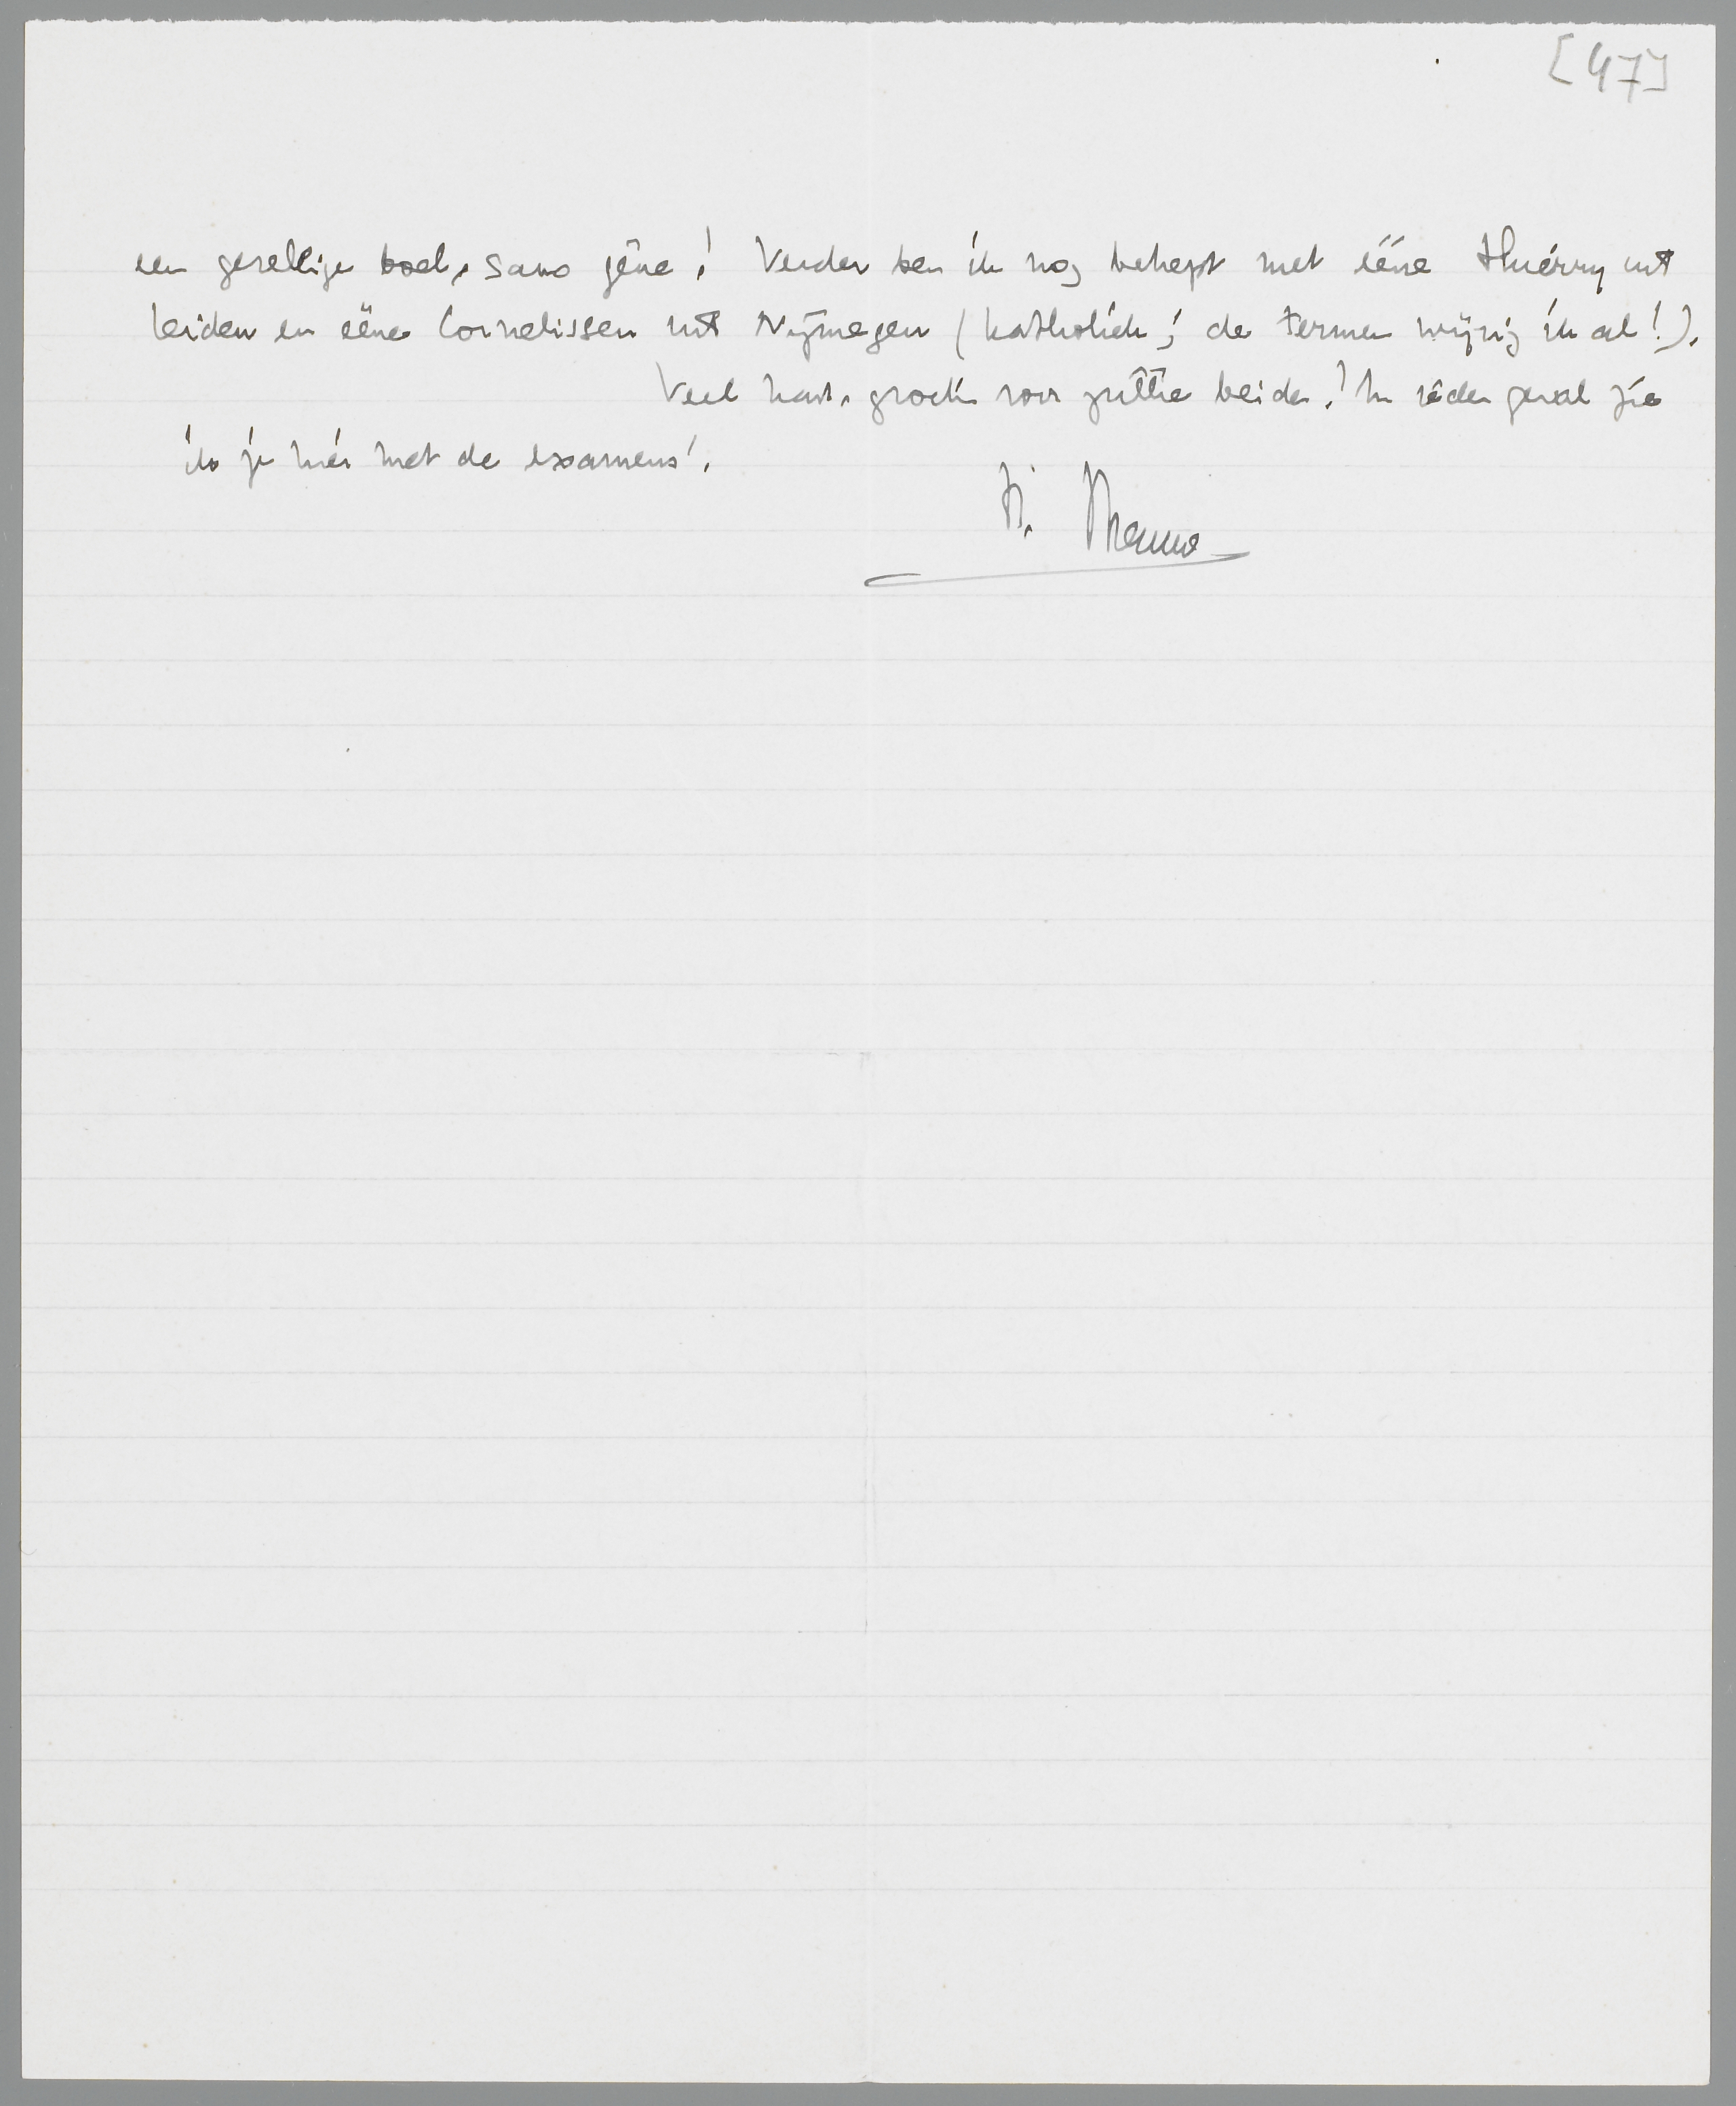 [47]
een gezellige boel, sans gêne! Verder ben ik nog behept met eêne Thiérry uit
Leiden en eêne Cornelissen uit Nijmegen (katholiek; de termen wijzig ik al!).
Veel hart. groeten voor jullie beiden! In ieder geval zie
ik je hier met de examens!
Menno